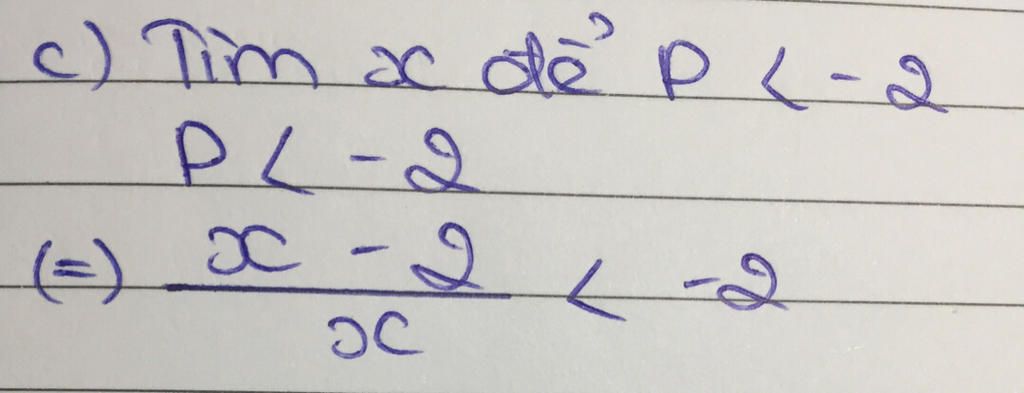 c) Tìm x để P < -2
P < -2
(=) x - 2 / x < -2